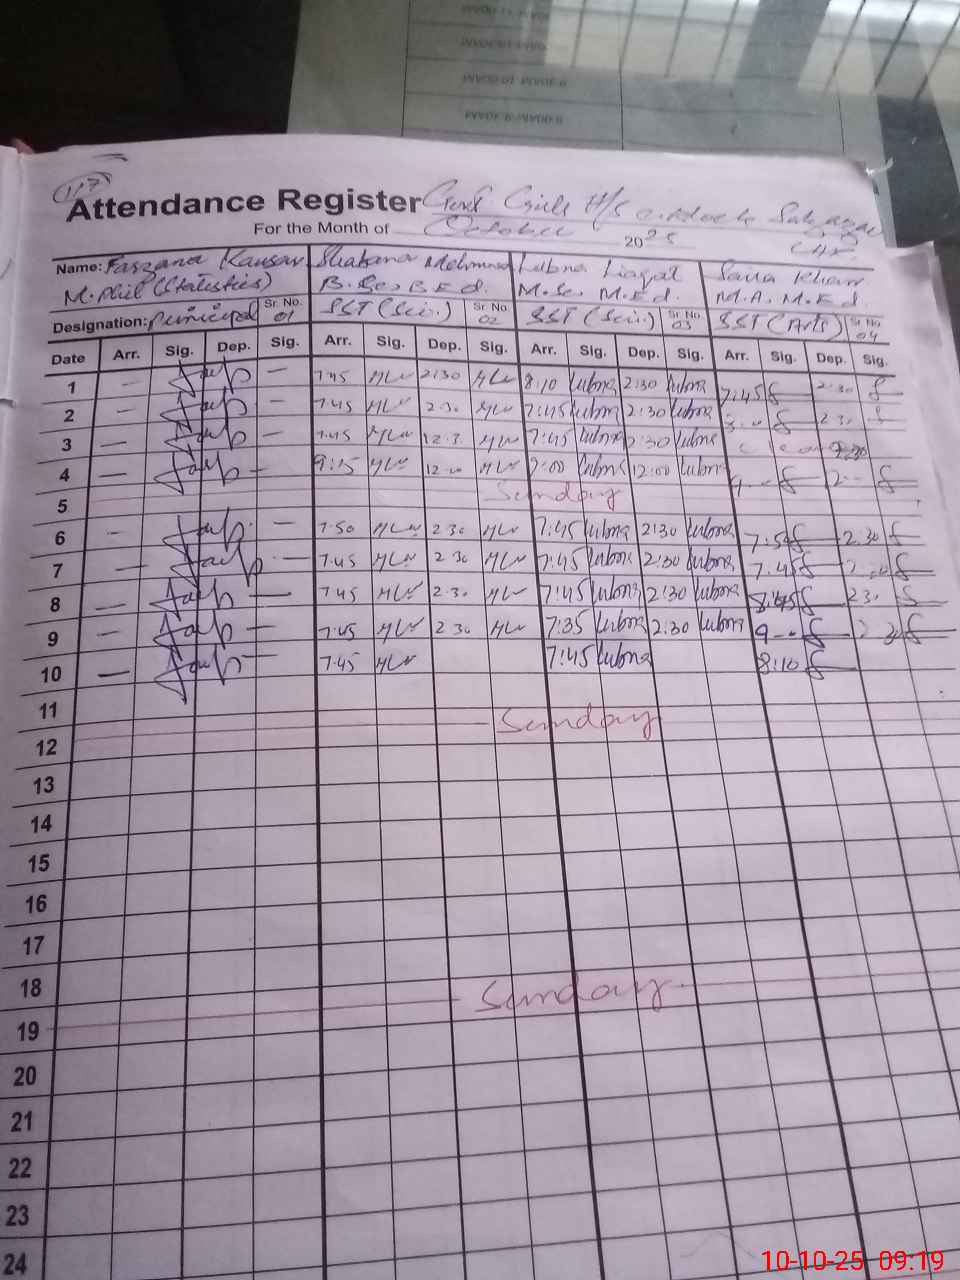 117
Attendance Register Govt Girls H/S
For the Month of October 2025
Name: Farzana Kausar Shabana Mehmood Lubna Liaqat Sana Khan
M.Phil (Statistics) B.Sc, B.Ed. M.Sc, M.Ed. M.A, M.Ed.
Designation: Principal Sr. No. 01 SST (Sci.) Sr. No. 02 SST (Sci.) Sr. No. 03 SST (Arts) Sr. No. 04
Date Arr. Sig. Dep. Sig. Arr. Sig. Dep. Sig. Arr. Sig. Dep. Sig. Arr. Sig. Dep. Sig.
1 — — 7.45 2:30 8:10 Lubna 2:30 Lubna 7:45 2:30
2 — 7.45 2.30 7:45 Lubna 2:30 Lubna 2.30
3 — 7.45 12.3 7:45 Lubna 2:30 Lubna
4 — — 9:15 12.00 9:00 Lubna 12:00 Lubna
5 Sunday
6 — — 7.50 2.30 7:45 Lubna 2:30 Lubna 7:50 2.30
7 — — 7.45 2.30 7:45 Lubna 2:30 Lubna 7.45
8 — — 7.45 2.30 7:45 Lubna 2:30 Lubna 8:45 2.30
9 — — 7.45 2.30 7:35 Lubna 2:30 Lubna
10 — — 7.45 7:45 Lubna 8:10
11
Sunday
12
13
14
15
16
17
18
Sunday
19
20
21
22
23
24
10-10-25 09:19